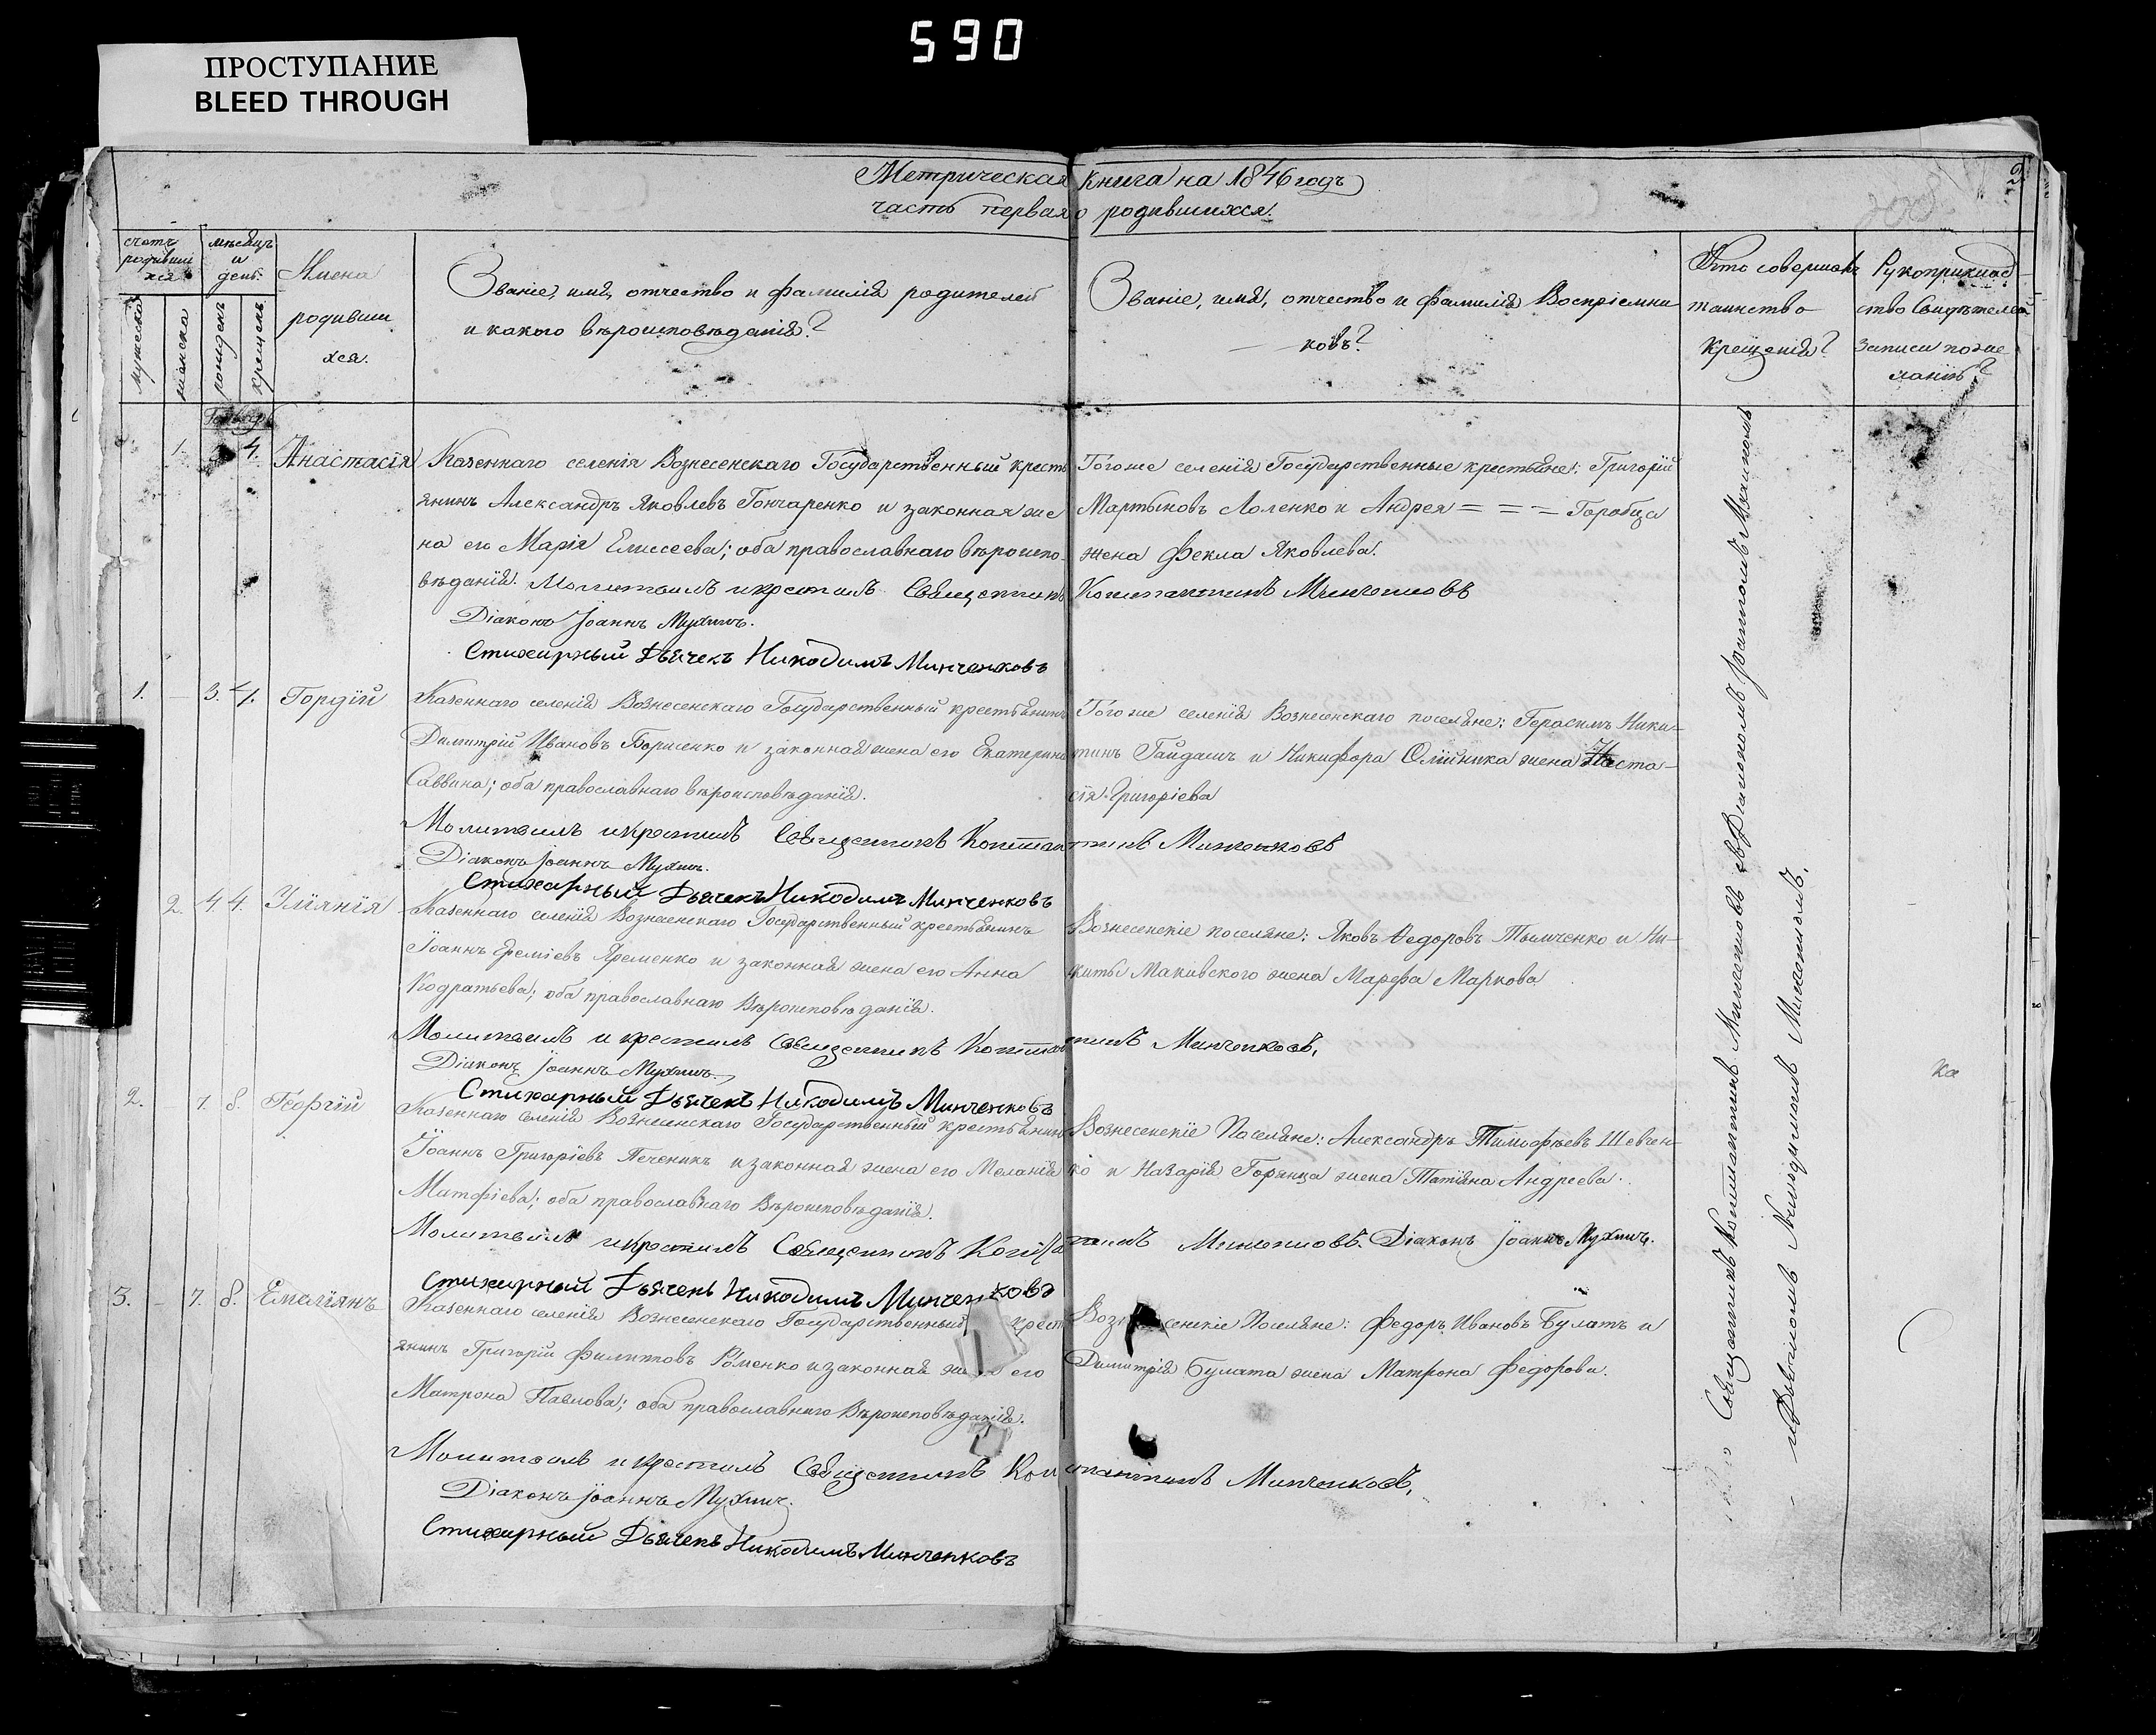 590
ПРОСТУПАНИЕ
BLEED THROUGH
Метрическая книга на 1846 годъ
часть первая о родившихся.
2
счетъ родивши хся
мѣсяцъ и день.
мужеска
женска
рожденъ
крещенъ
Имена родивши хся.
Званіе, имя, отчество и фамилія родителей
и какого вѣроисповѣданія?
Званіе, имя, отчество и фамилія Воспріемни
ковъ?
Кто совершалъ
таинство
крещенія?
Рукоприклад
ство Свидѣтелей
записи по же
ланію?
1. 4. Анастасія
Казеннаго селенія Вознесенскаго Государственный кресть
янинъ Александръ Яковлевъ Гончаренко и законная же
на его Марія Елисеева; оба православнаго вѣроиспо-
вѣданія. Молитвилъ и крестилъ Священникъ Константинъ Минченковъ
Діаконъ Іоаннъ Мухинъ.
Стихарный Дьячекъ Никодимъ Минченковъ
Тогоже селенія Государственные крестьяне: Григорій
Мартыновъ Лоленко и Андрея = = = Горобца
жена Фекла Яковлева.
1. – 3. 4. Гордій
Казеннаго селенія Вознесенскаго Государственный крестьянинъ
Димитрій Ивановъ Борисенко и законная жена его Екатерина
Саввина; оба православнаго вѣроисповѣданія.
Тогоже селенія Вознесенскаго поселяне: Герасимъ Ники-
тинъ Гайдашъ и Никифора Олійника жена Наста-
сія Григоріева
Молитвилъ и крестилъ Священникъ Константинъ Минченковъ
Діаконъ Іоаннъ Мухинъ.
Стихарный Дьячекъ Никодимъ Минченковъ
2. 4. 4. Уліянія
Казеннаго селенія Вознесенскаго Государственный крестьянинъ
Іоаннъ Ереміевъ Яременко и законная жена его Анна
Кодратьева; оба православнаго Вѣроисповѣданія.
Вознесенскіе поселяне: Яковъ Ѳедоровъ Тымченко и Ни-
киты Маковского жена Марѳа Маркова
Молитвилъ и крестилъ Священникъ Константинъ Минченковъ.
Діаконъ Іоаннъ Мухинъ.
Стихарный Дьячекъ Никодимъ Минченковъ
2. 7. 8. Георгій
Казеннаго селенія Вознесенскаго Государственный крестьянинъ
Іоаннъ Григоріевъ Печеникъ и законная жена его Меланія
Матфіева; оба православнаго Вѣроисповѣданія.
Вознесенскіе Поселяне: Александръ Тимофѣевъ Шевчен-
ко и Назарія Горянца жена Татіяна Андреева.
Молитвилъ и крестилъ Священникъ Константинъ Минченковъ. Діаконъ Іоаннъ Мухинъ.
Стихарный Дьячекъ Никодимъ Минченковъ
3. – 7. 8. Емеліянъ
Казеннаго селенія Вознесенскаго Государственный крест
янинъ Григорій Филиповъ Роменко и законная жена его
Матрона Павлова; оба православнаго Вѣроисповѣданія.
Вознесенскіе Поселяне: Федоръ Ивановъ Булатъ и
Димитрія Булата жена Матрона Федорова.
Молитвилъ и крестилъ Священникъ Константинъ Минченковъ.
Діаконъ Іоаннъ Мухинъ.
Стихарный Дьячекъ Никодимъ Минченковъ
Священникъ Константинъ Минченковъ съ Діакономъ Іоанномъ Мухинымъ
и Дьячкомъ Никодимомъ Минченковымъ.
ка